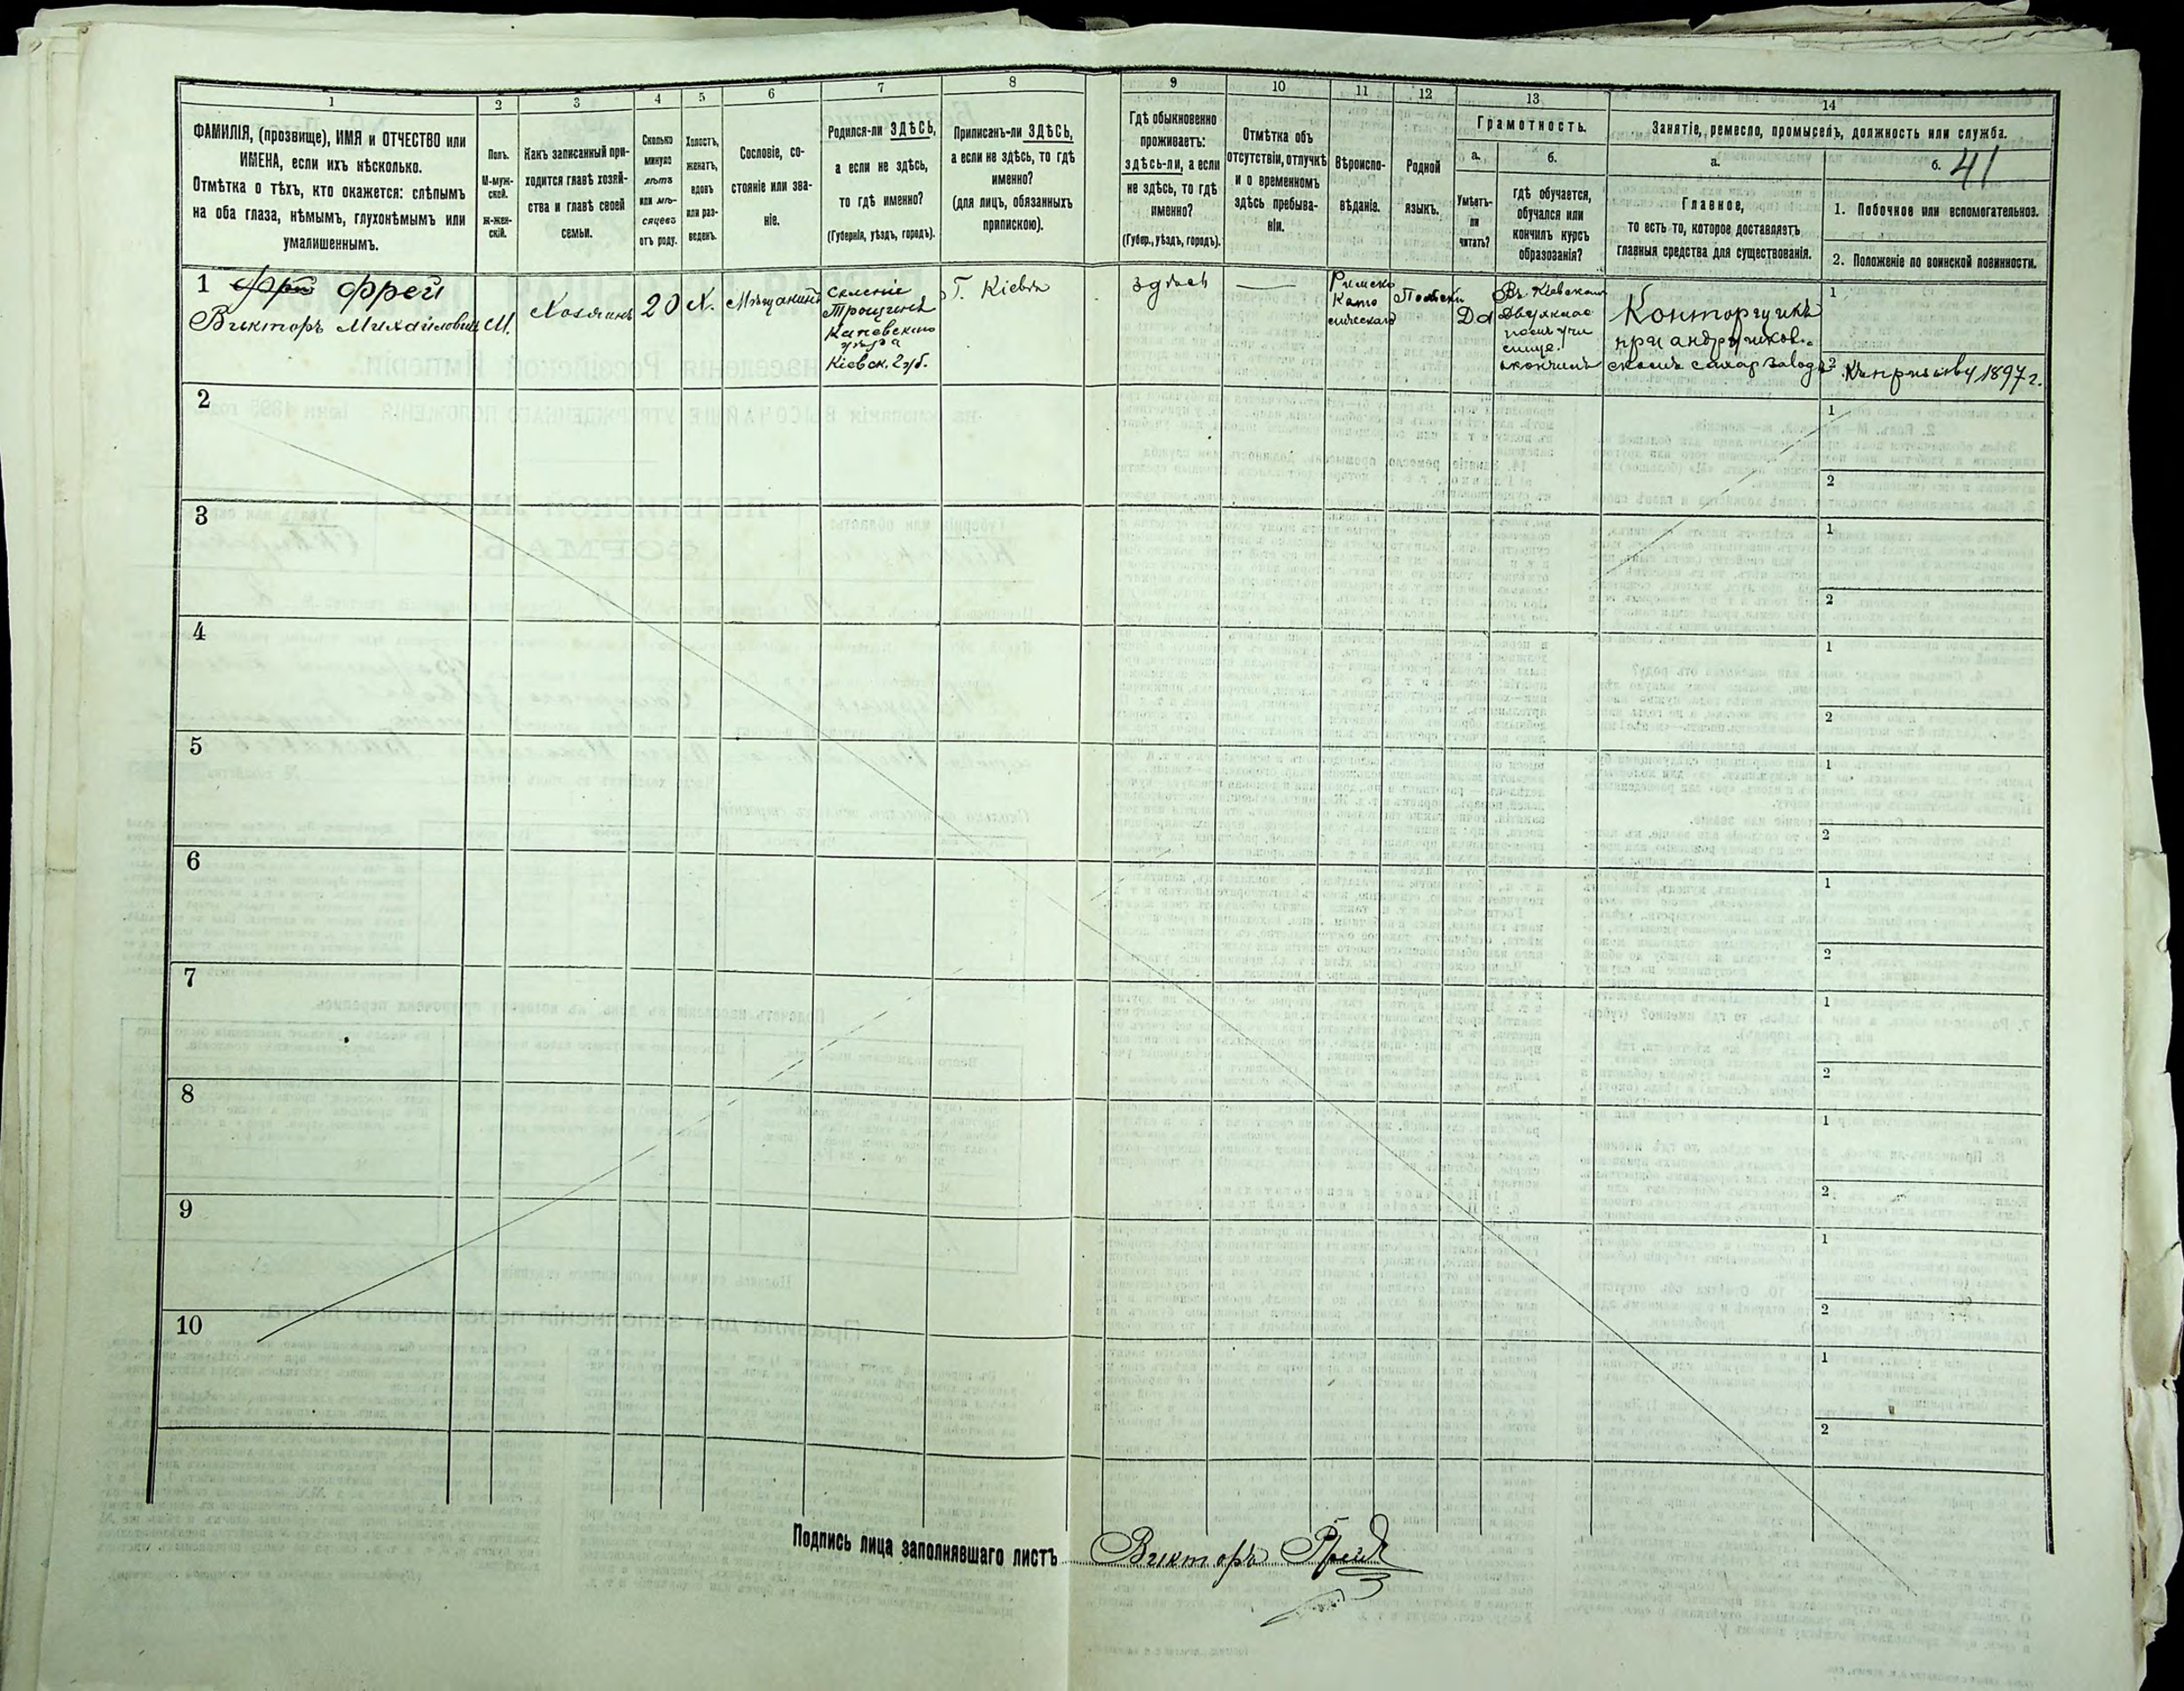 1 2 3 4 5 6 7 8 9 10 11 12 13 14
ФАМИЛІЯ, (прозвище), ИМЯ и ОТЧЕСТВО или
ИМЕНА, если ихъ нѣсколько.
Отмѣтка о тѣхъ, кто окажется: слѣпымъ
на оба глаза, нѣмымъ, глухонѣмымъ или
умалишеннымъ.
Полъ.
М-муж-
ской.
ж-жен-
скій.
Какъ записанный при-
ходится главѣ хозяй-
ства и главѣ своей
семьи.
Сколько
минуло
лѣтъ
или мѣ-
сяцевъ
отъ роду.
Холостъ,
женатъ,
вдовъ
или раз-
веденъ.
Сословіе, со-
стояніе или зва-
ніе.
Родился-ли ЗДѢСЬ,
а если не здѣсь,
то гдѣ именно?
(Губернія, уѣздъ, городъ).
Приписанъ-ли ЗДѢСЬ,
а если не здѣсь, то гдѣ
именно?
(для лицъ, обязанныхъ
припискою).
Гдѣ обыкновенно
проживаетъ:
здѣсь-ли, а если
не здѣсь, то гдѣ
именно?
(Губер., уѣздъ, городъ).
Отмѣтка объ
отсутствіи, отлучкѣ
и о временномъ
здѣсь пребыва-
ніи.
Вѣроиспо-
вѣданіе.
Родной
языкъ.
Грамотность.
а.
Умѣетъ-
ли
читать?
б.
гдѣ обучается,
обучался или
кончилъ курсъ
образованія?
Занятіе, ремесло, промыселъ, должность или служба.
а.
Главное,
то есть то, которое доставляетъ
главныя средства для существованія.
б. 41
1. Побочное или вспомогательное.
2. Положеніе по воинской повинности.
1 Фрей
Викторъ Михайловичъ
М.
Хозяинъ
20
Х.
Мѣщанинъ
Селеніе
Трощинъ
Каневскаго
уѣзда
Кіевск. губ.
Г. Кіевъ
здѣсь
Римско
Като
лическаго
Польскій
Да
Въ Кіевскомъ
Двухклас
училище.
окончилъ
Конторщикъ
при андрушков-
скомъ сахар заводѣ
1
2 Къ призыву 1897 г.
2
1
2
3
1
2
4
1
2
5
1
2
6
1
2
7
1
2
8
1
2
9
1
2
10
1
2
Подпись лица заполнявшаго листъ Викторъ Фрей